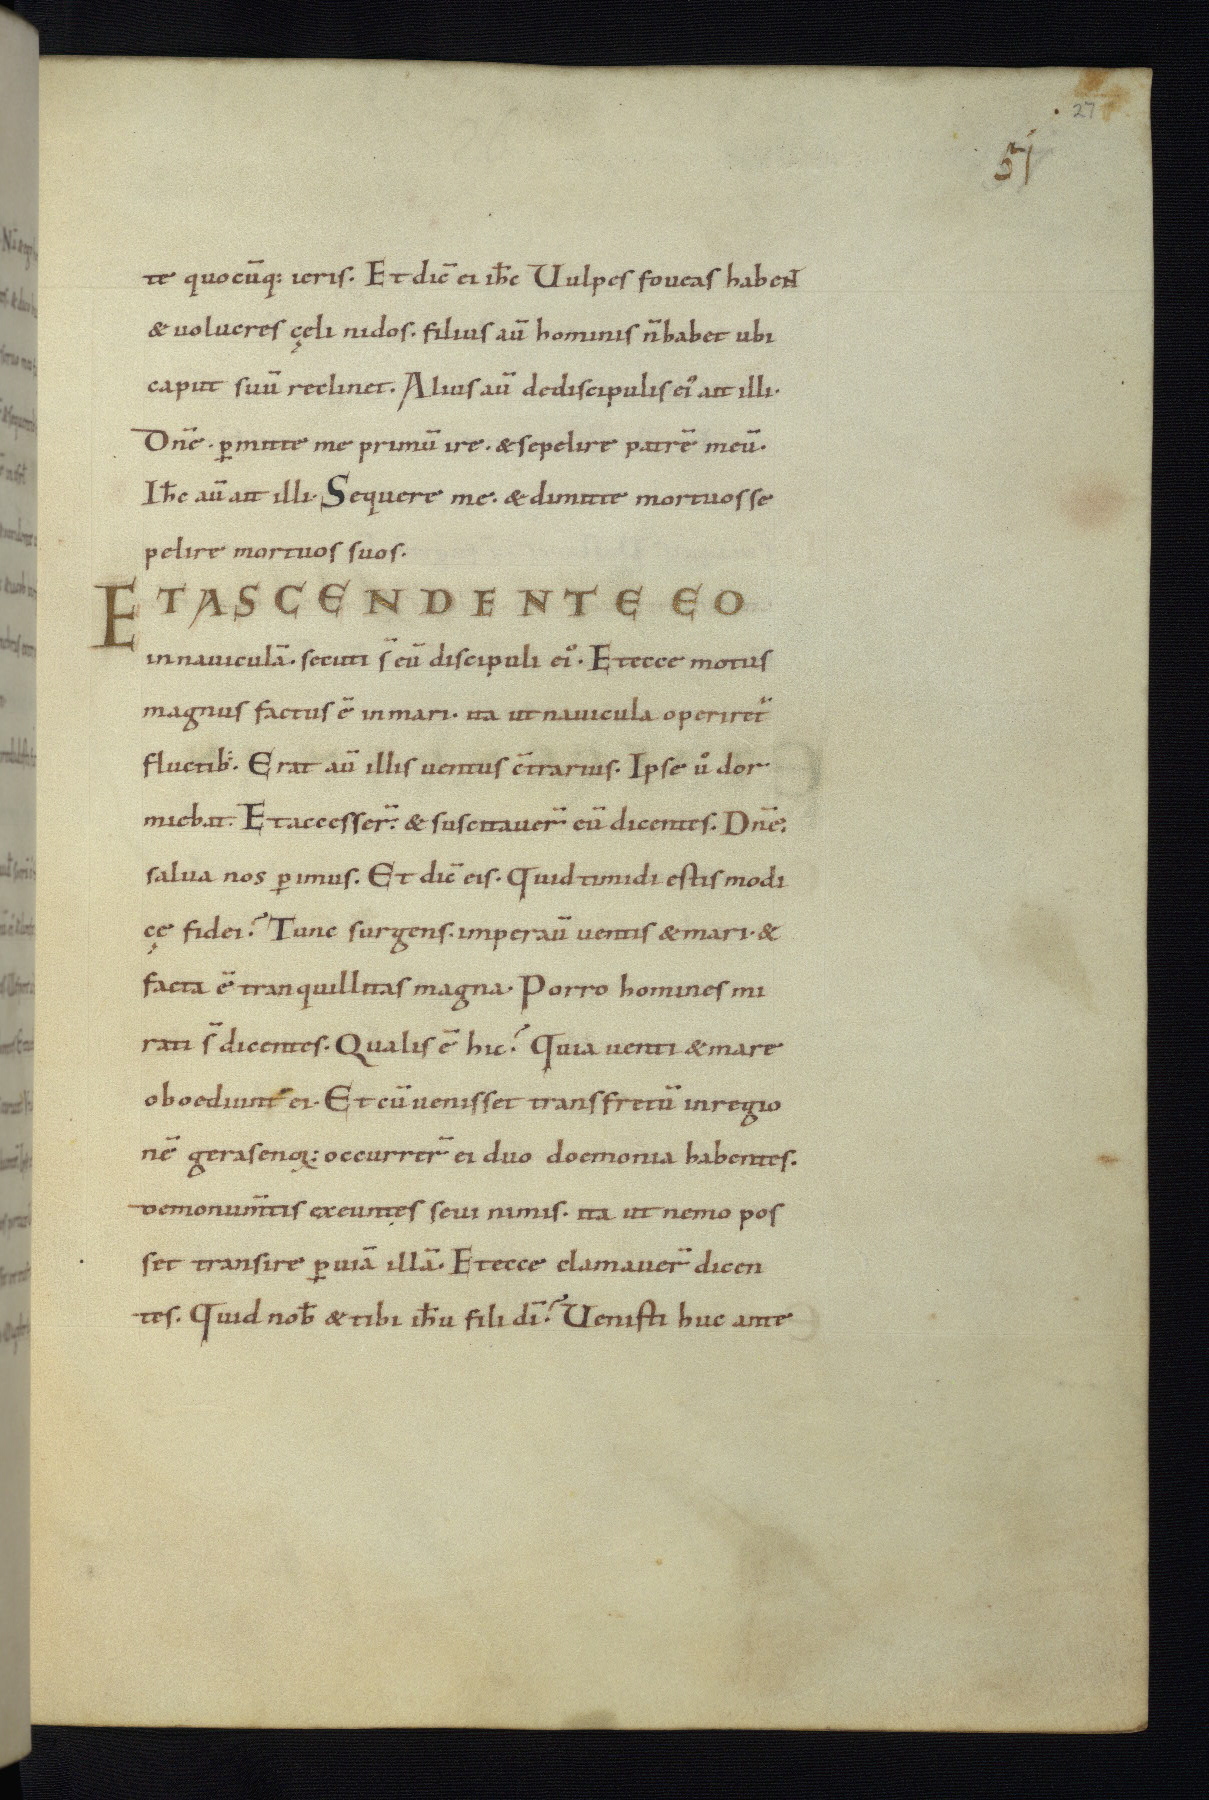 27
51
te quocūq; ieris. Et dic̄ ei ihc̄ Uulpes foueas habent
& uolucres cęli nidos. filius aū hominis n̄ habet ubi
caput suū reclinet. Alius aū de discipulis ei᾽ ait illi.
Dn̄e. ꝑmitte me primū ire. & sepelire patrē meū.
Ihc̄ aū ait illi. Sequere me. & dimitte mortuos se
pelire mortuos suos.
ET ASCENDENTE EO
in nauiculā. secuti s̄ eū discipuli ei᾽. Et ecce motus
magnus factus ē in mari. ita ut nauicula operiret᷑
fluctib; Erat aū illis uentus c̄trarius. Ipse u͛o dor
miebat. Et accesser̄. & suscitauer̄ eū dicentes. Dn̄e.
salua nos ꝑimus. Et dic̄ eis. Quid timidi estis modi
cę fidei? Tunc surgens. imperau̅ uentis & mari. &
facta ē tranquillitas magna. Porro homines mi
rati s̄ dicentes. Qualis ē hic? Quia uenti & mare
oboediunt ei. Et cū uenisset trans fretū in regio
nē gerasenoꝝ: occurrer̄ ei duo doemonia habentes.
de monum̄tis exeuntes seui nimis. ita ut nemo pos
set transire ꝑ uiā illā. Et ecce clamauer̄ dicen
tes. Quid nob̄ & tibi ih̄u fili dī? Uenisti huc ante